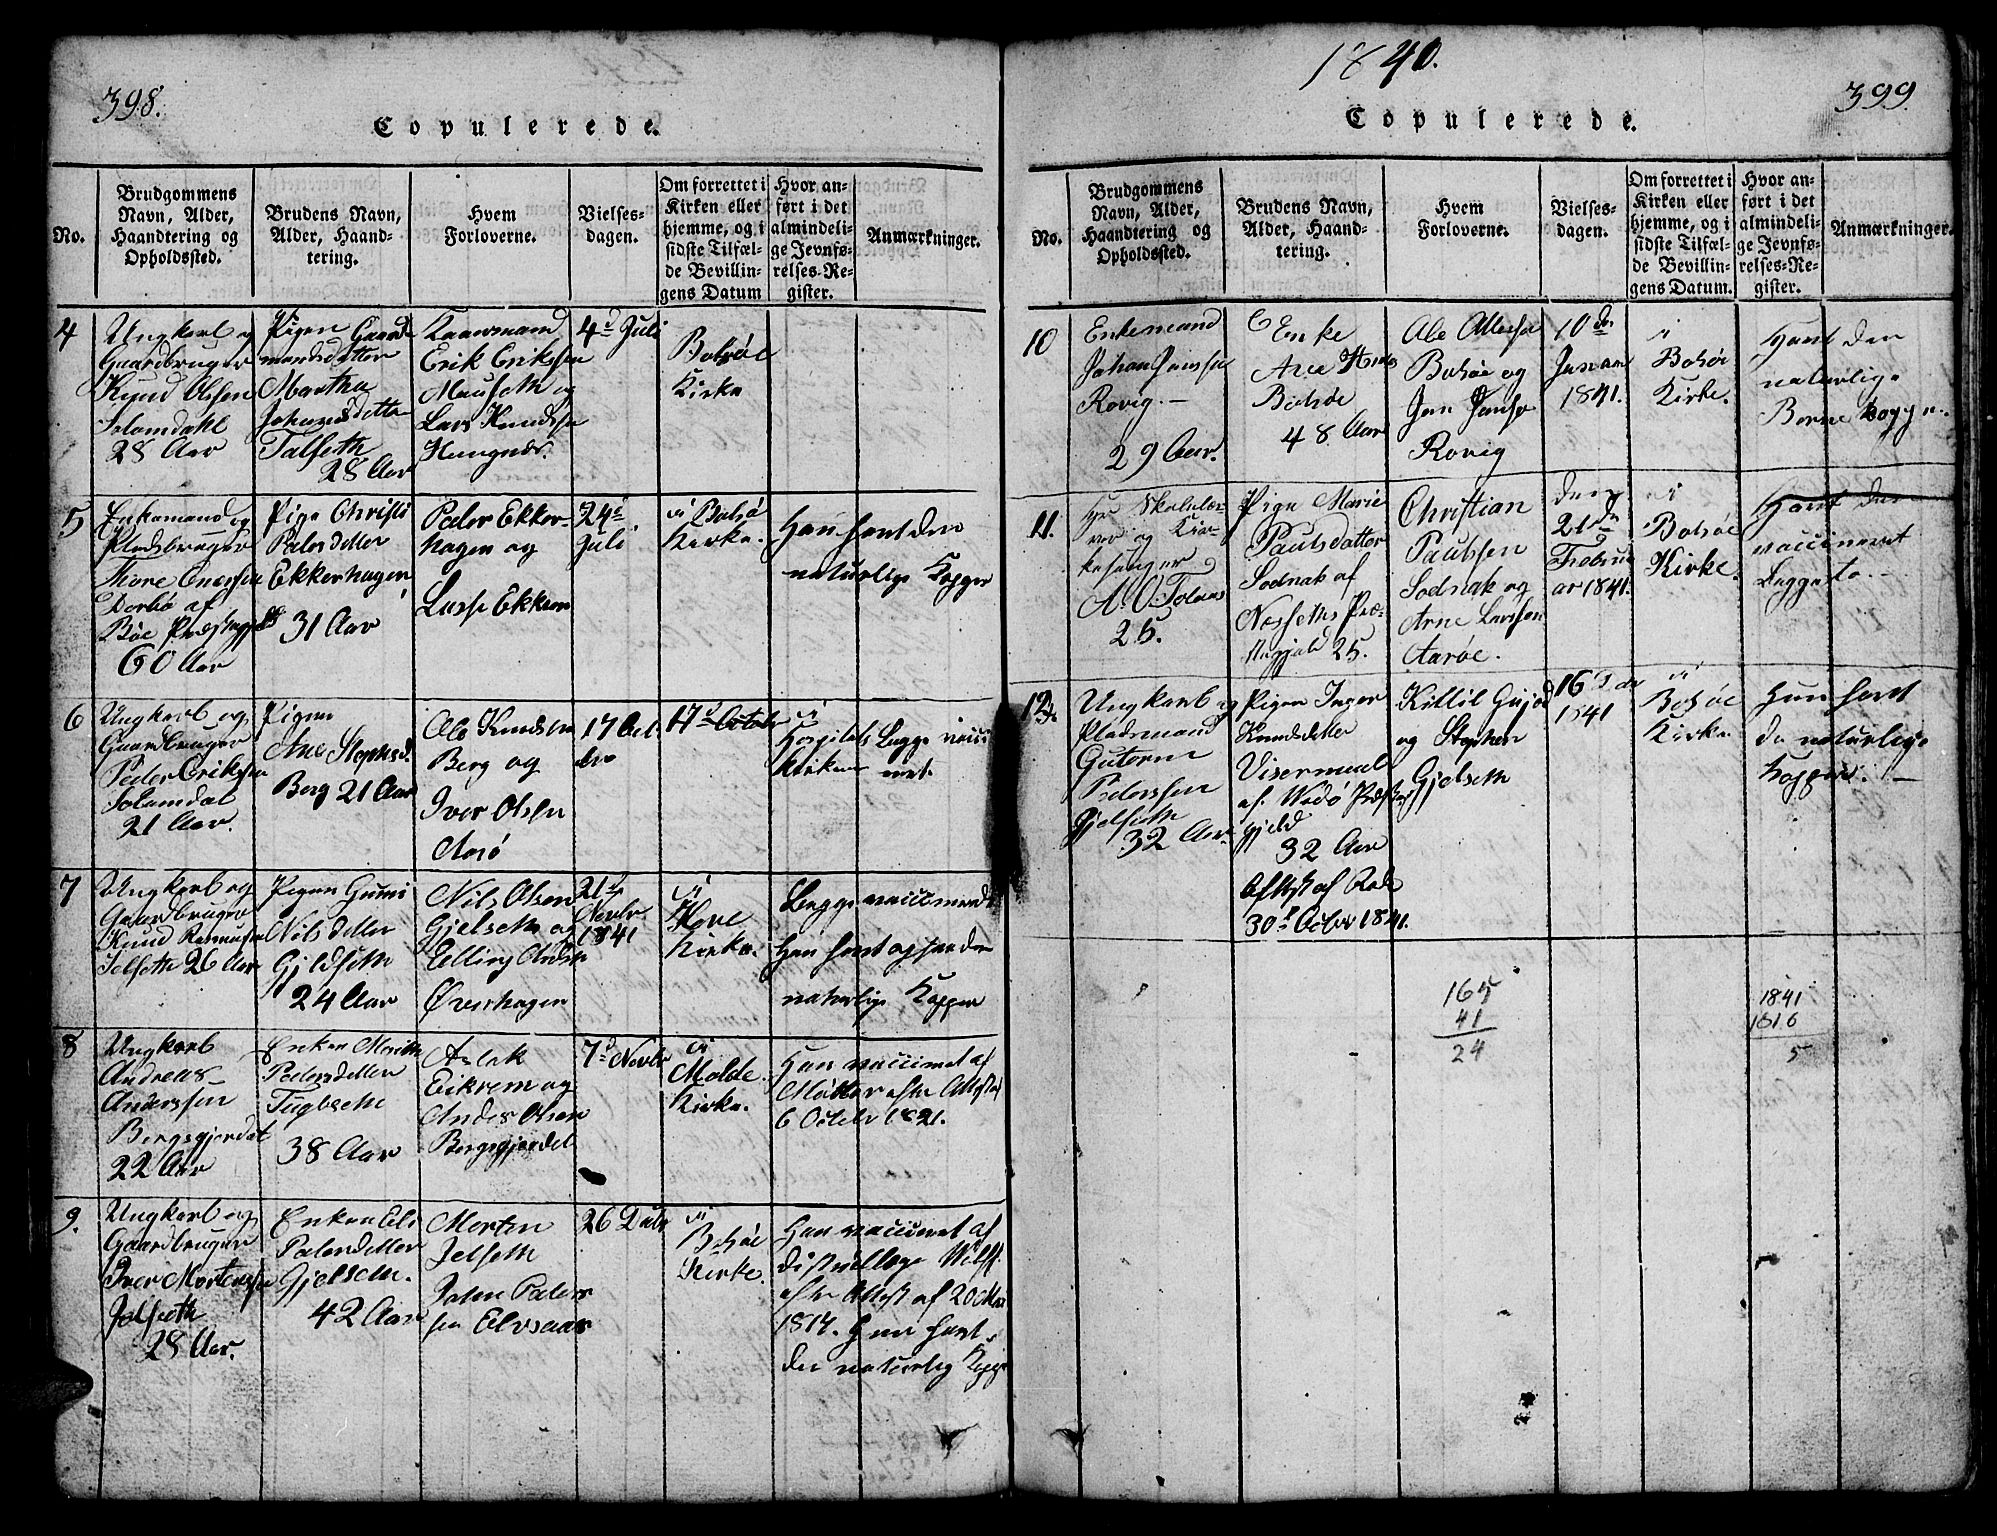 398.
Copulerede.
No.
Brudgommens
Navn, Alder,
Haandtering og
Opholdssted.
Brudens Navn,
Alder, Haand-
tering.
Hvem
Forloverne.
Vielses-
dagen.
Om forrettet i
Kirken eller
hjemme, og i
sidste Tilfæl-
de Bevillin-
gens Datum
Hvor an-
ført i det
almindeli-
ge Jevnfø-
relses-Re-
gister.
Anmærkninger.
4
Ungkarl og
Gaardbruger
Knud Olsen
Solemdahl
28 Aar
Pigen Gaard-
mandsdatter
Martha
Johansdatter
Talseth
28 Aar
Erik Eriksen
Mauseth og
Lars Knudsen
4d Juli
Bolsøe
Kirke
5
Enkemand og
Pladsbruger
60 Aar
Pige Christi
Peders datter
Ekkerhagen
31 Aar
Peder Ekker-
hagen og
Lasse Ekkrem
24d
Juli
i Bolsø
Kirke.
Han havt den
naturlige Kopper
6
Ungkarl og
Gaardbruger
Peder Eriksen
Solemdal
21 Aar.
Pigen
Ane Stephsd.
Berg 21 Aar
Ole Knudsen
Berg og
Iver Olsen
Aarø
17 Oct-
br
17d October
i
Hospitals
Kirken
Begge vacci
neret
7
Ungkarl og
Gaardbruger
Knud Rasmusen
Jelseth 26 Aar
Pigen Guni
Nils datter
Gjelseth
24 Aar
Nils Olsen
Gjelseth og
Elling Andsn
Øverhagen
21d
Novbr
1841
i
Kleve
Kirke.
Begge vaccinerede
Han havt ogsaa den
naturlige Kopper
8
Ungkarl
Andreas
Anderssen
Bergsgjerdet
22 Aar
Enken Marith
Pedersdatter
Fuglseth
38 Aar
Aslak
Eikrem og
Andes Olsen
Bergsgjerdet
7d Novbr
i
Molde
Kirke.
Han vaccineret af
Møller efter Attest af
6 Octobr 1821.
9.
Ungkarl og
Gaardbruger
Iver Mortensen
Jelseth
28 Aar.
Enken Eli
Pedersdatter
Gjelseth.
42 Aar
Morten
Jelseth
John Peder
sen Elvsaas
26 Decbr
i
Bolsøe
Kirke.
Han vaccineret af
efter Attest af 20 Mai
1817. Hun havt
den naturlig Kopper
1840.
399
Copulerede.
No.
Brudgommens
Navn, Alder,
Haandtering og
Opholdssted.
Brudens Navn,
Alder, Haand-
tering.
Hvem
Forloverne.
Vielses-
dagen.
Om forrettet i
Kirken eller
hjemme, og i
sidste Tilfæl-
de Bevillin-
gens Datum.
Hvor an-
ført i det
almindeli-
ge Jevnfø-
relses-Re-
gister.
Anmærkninger.
10
Enkemand
Johan Jonsen
Røvig.
29 Aar.
Enke
Bolsøe
48 Aar
Ole Olleson
Bolsøe og
Jon Jonsen
Røvig
10 den
Januar
1841.
i
Bolsøe
Kirke.
Havt den
naturlige
Børne kopper.
11.
Skolelæ-
rer og Kir-
kesanger
25.
Pige Marie
Paulsdatter
Sødnak af
Næssets Præ-
stegjeld 25.
Christian
Paulssen
Sødnak og
Arne Larssen
Aarøe.
den
21de
Februa
ar 1841.
i
Bolsøe
Kirke.
Havt den
vaccineret
begge to.
12.
Ungkarl og
Pladsmand
Gutorm
Pederssen
Gjelseth
32 Aar.
Pigen Inger
Knudsdatter
af Vedø Præste
gjeld
32 Aar
Attest af Rode
30d Octbr 1841.
og Stephen
Gjelseth
1841
i
Bolsøe
Kirke.
Hun havt
de naturlige
Kopper.
165
41
24
1841
1816
5